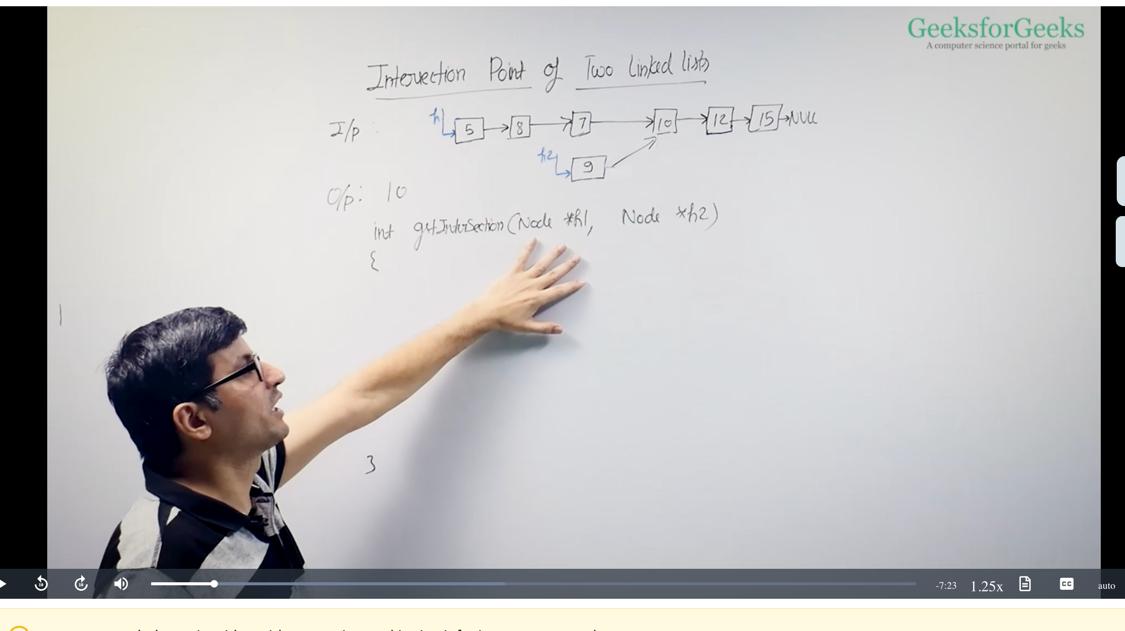 GeeksforGeeks
A computer science portal for geeks
Intersection Point of Two Linked lists
I/p : h1 5 8 7 10 12 15 NULL
h2 9
O/p: 10
int getIntersection(Node *h1, Node *h2)
{
}
-7:23 1.25x CC auto